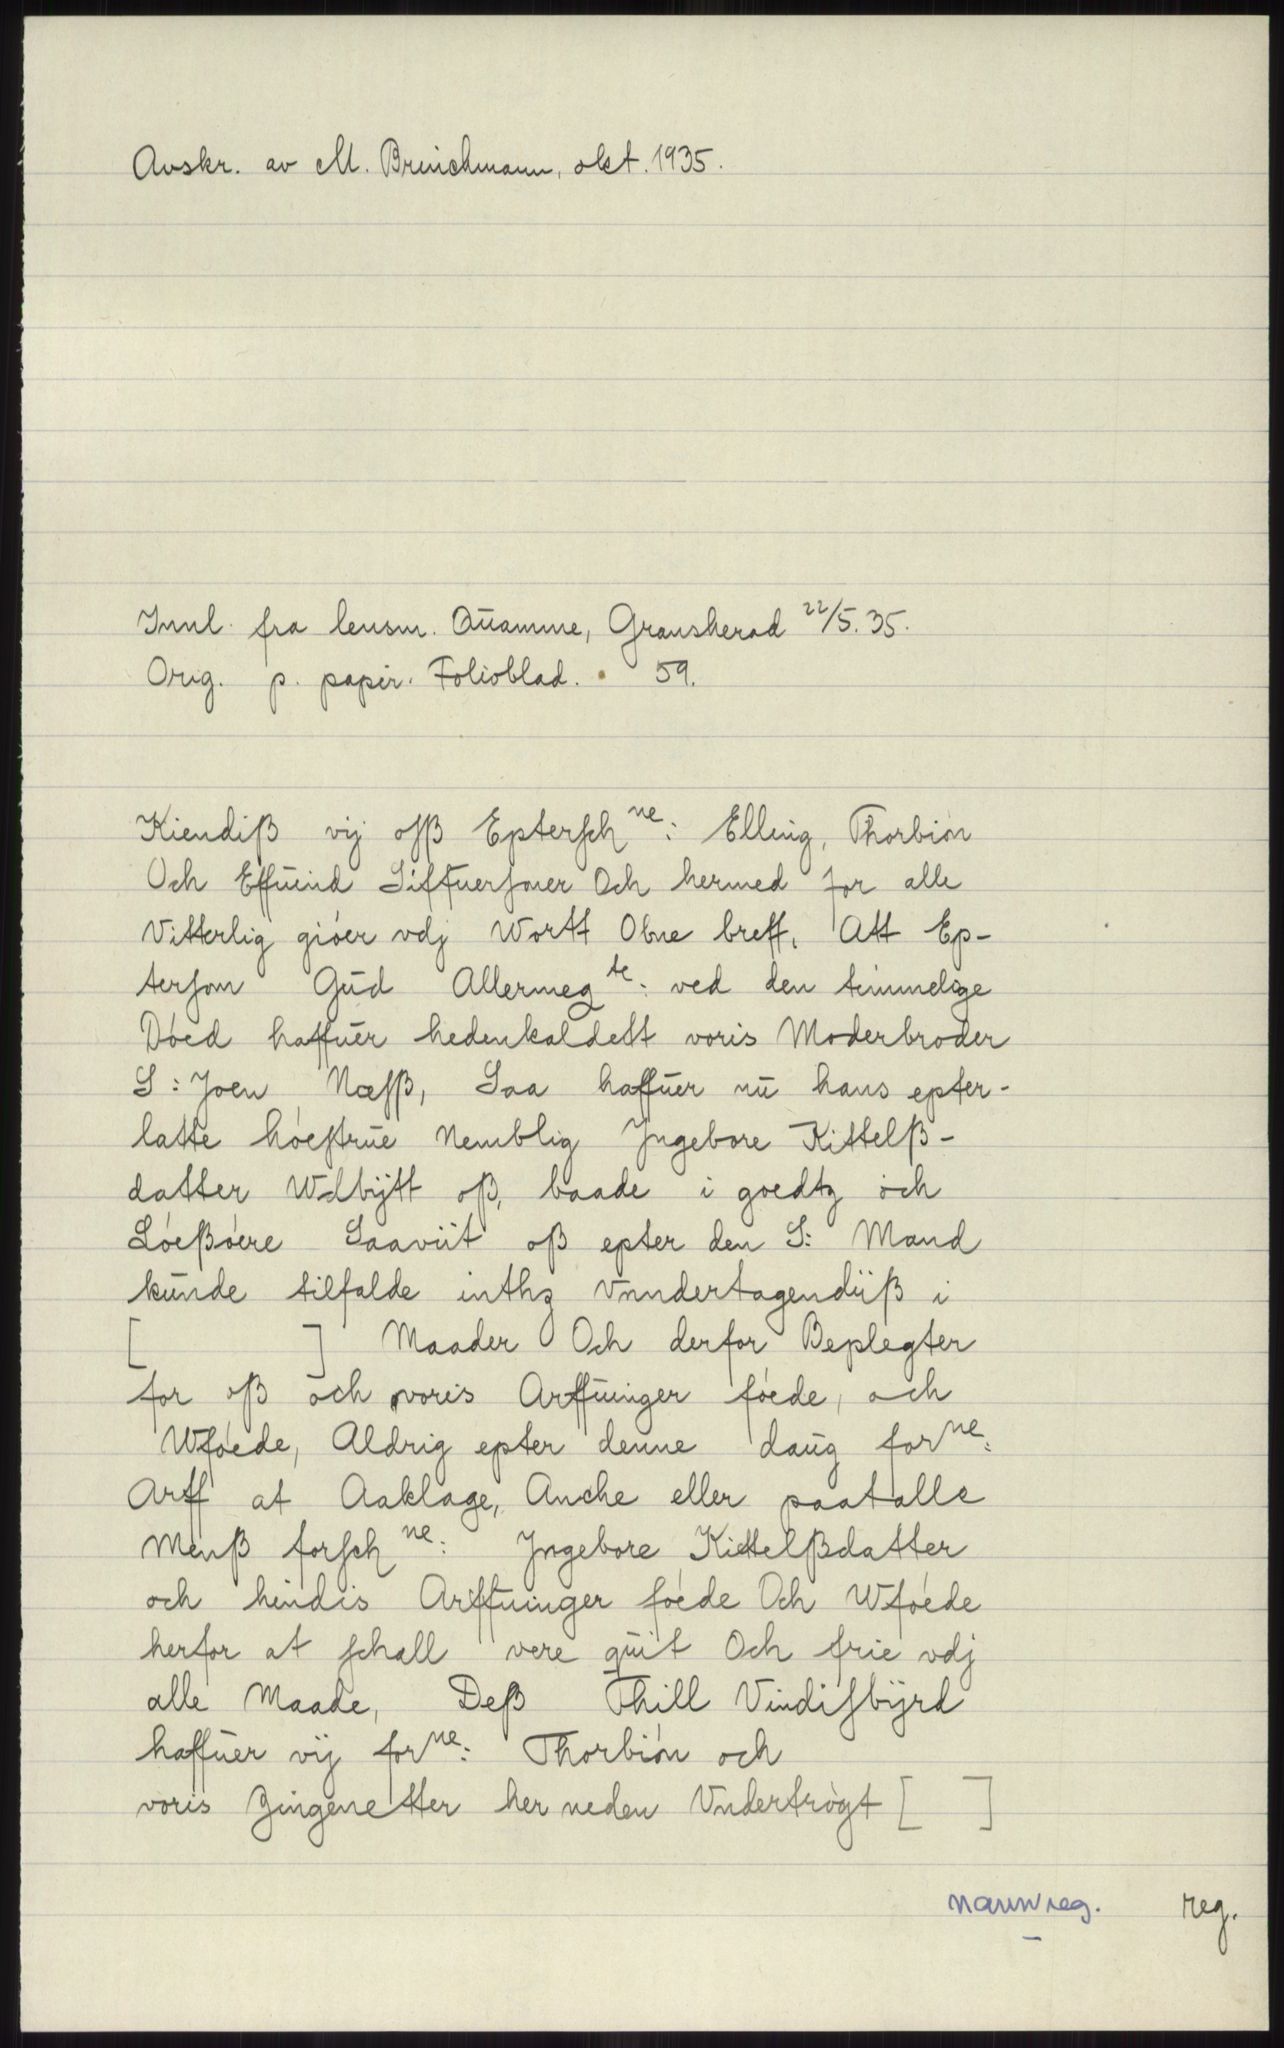 Avskr. av M. Brinchmann, okt. 1935.
Innl. fra lensm. Qūamme, Gransherad 22/5. 35.
Orig. p. papir. Folioblad. 59.
Kiendiß vij osß Eptersch ne: Elling, Thorbiøn
Och Effuind Siffuersøner Och hermed for alle
Vitterlig gióer vdj Wortt Obne breff, Att Ep-
tersom Gūd Allermeg te: ved den timmelige
Dóed haffuer hedenkaldett voris Moderbroder
S: Joen Næsß, Saa haffuer nū hans epter-
latte hóestrūe Nemblig Jngebore Kittelß-
datter Wdbÿtt oß, baade i goedtz och
Lóeßóere Saaviit oß epter den S: Mand
kūnde tilfalde inthz Vnndertagendiiß i
[ ] Maader Och derfor Beplegter
for oß och voris Arffuinger fóede, och
Wfóede, Aldrig epter denne daūg for ne:
Arff at Aaklage, Anche eller paatalle
Menß forsch ne: Jngebore Kittelßdatter
och hindis Arffuinger fóede Och Wfóede
herfor at schall vere qūit Och frie vdj
alle Maade, Deß Thill Vindisbÿrd
haffuer vij for ne: Thorbión och
voris Zingenetter her neden Vndertrögt [ ]
navnreg. reg.